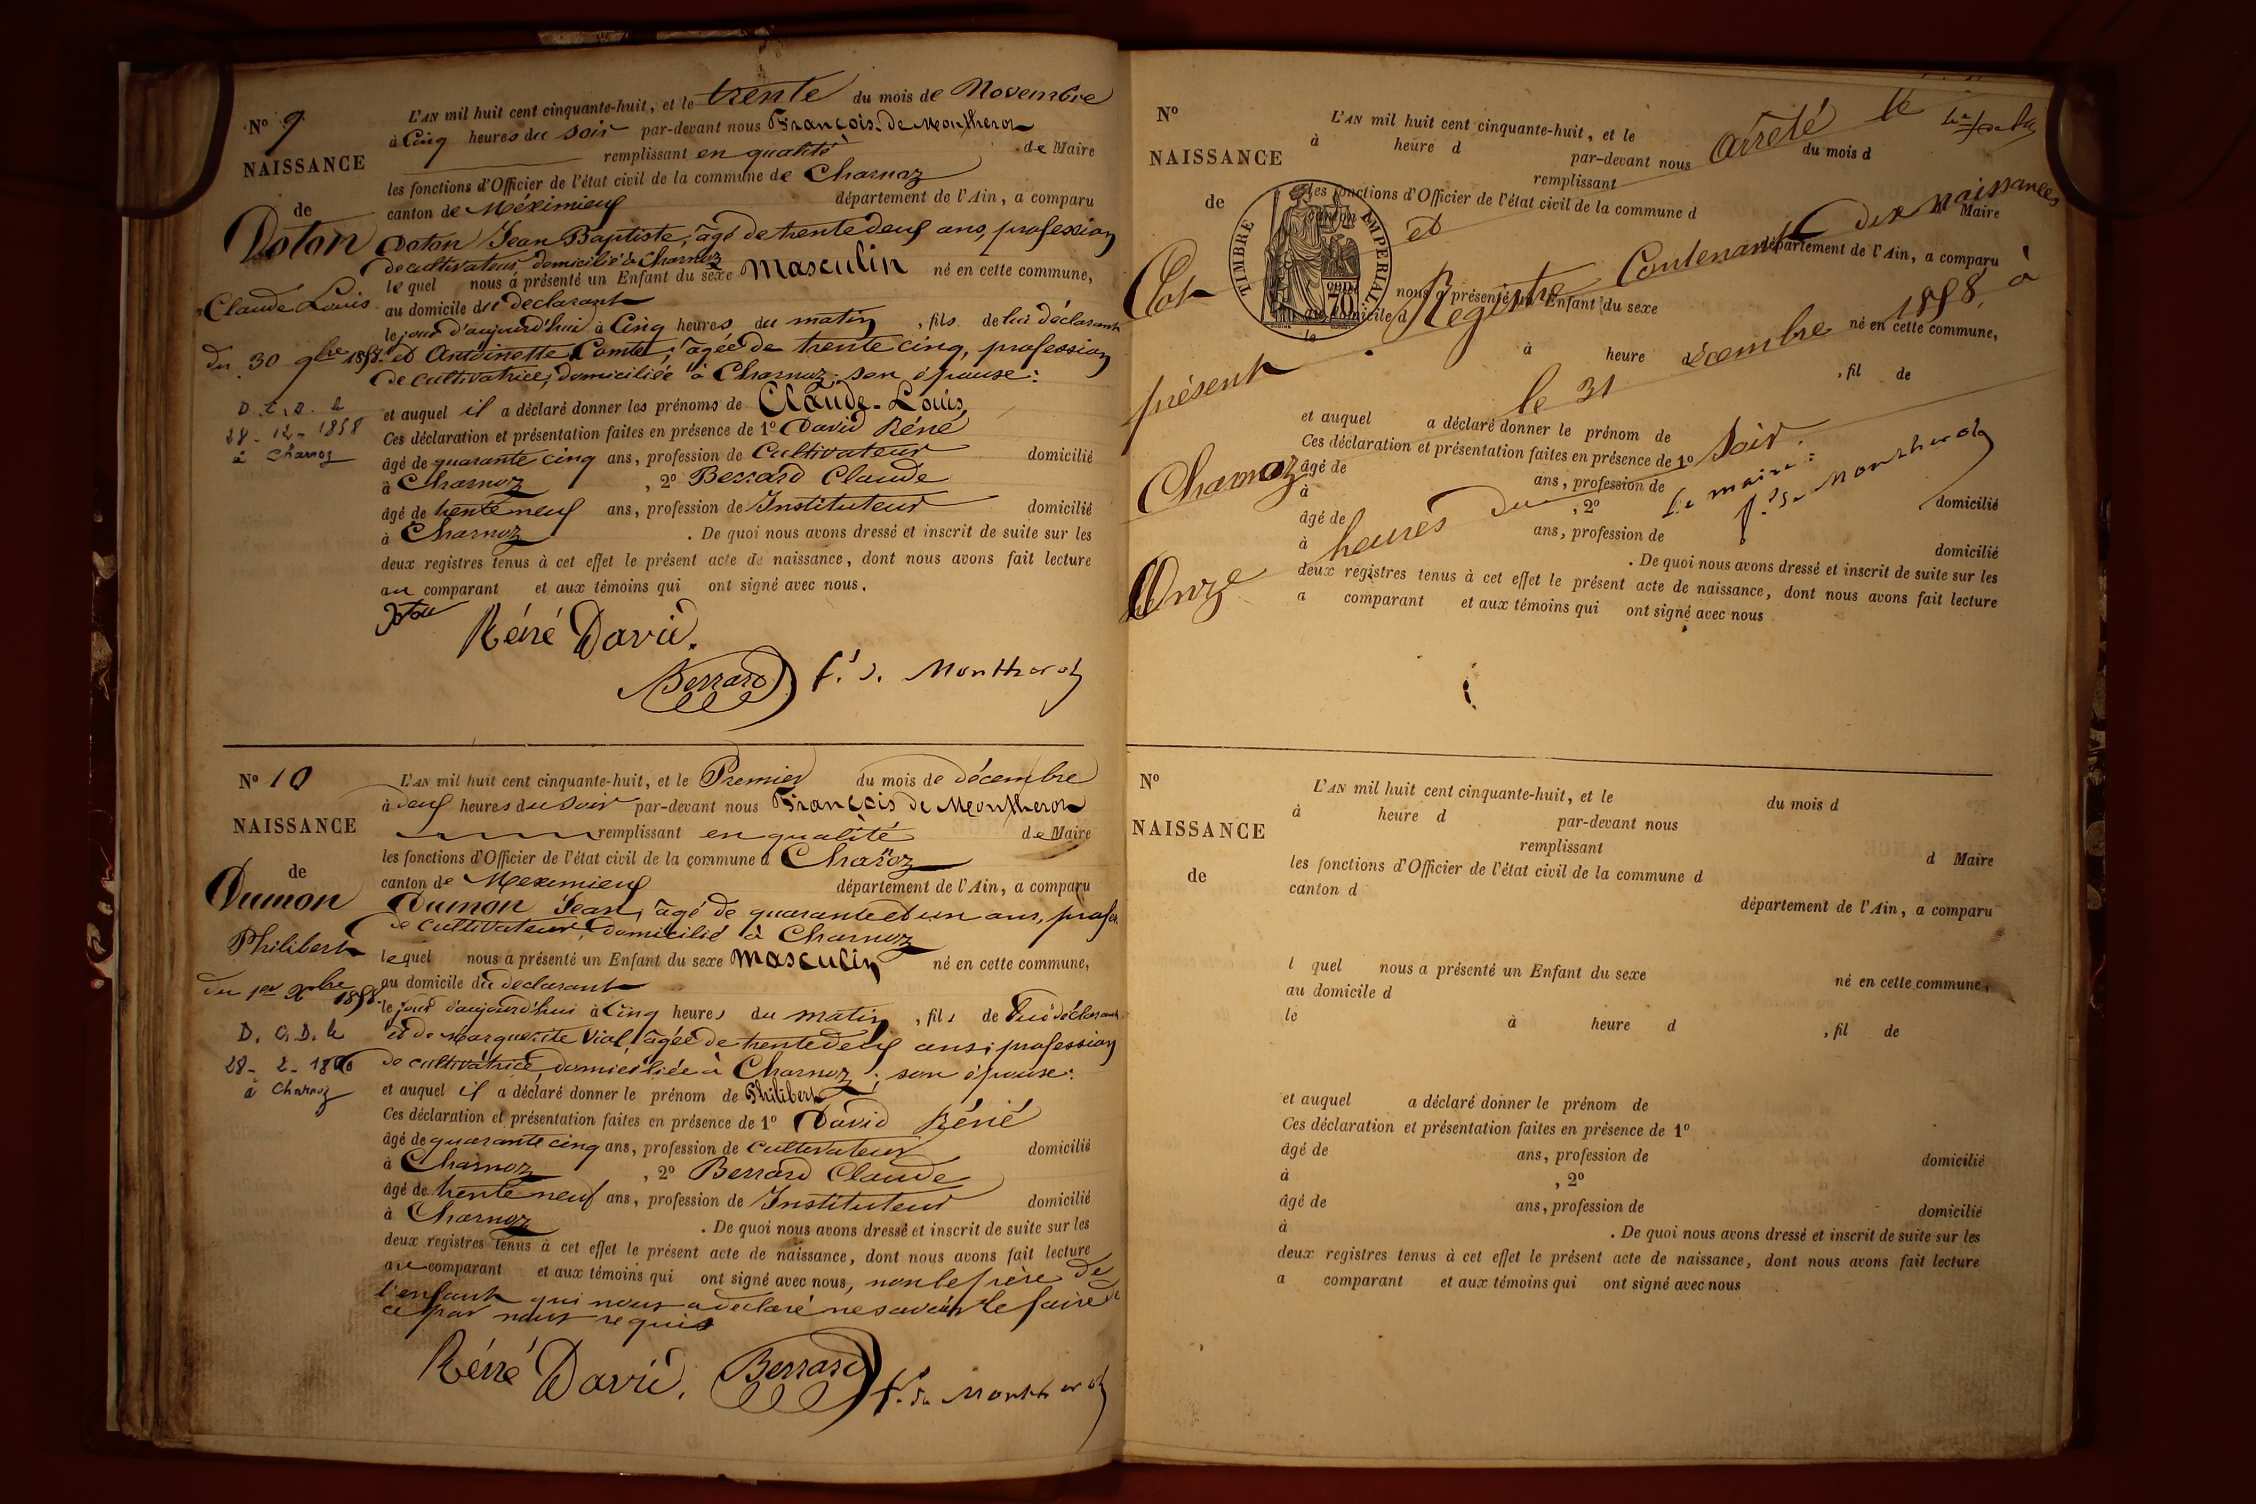 N° 9
NAISSANCE
de
Doton
Claude Louis
du 30 9bre 1858
D.C.D. le
28-12-1858
à Charnoz
L'AN mil huit cent cinquante-huit, et le trente du mois de Novembre
à Cinq heures du soir par-devant nous François de Montherot
remplissant en qualité de Maire
les fonctions d'Officier de l'état civil de la commune de Charnoz
canton de Méximieux département de l'Ain, a comparu
Doton Jean Baptiste, âgé de trente deux ans, profession
de cultivateur domicilié à Charnoz
le quel nous a présenté un Enfant du sexe masculin né en cette commune,
au domicile du déclarant
le jour d'aujourd'hui à Cinq heures du matin, fils de lui déclarant
et Antoinette Comte, âgée de trente cinq, profession
de cultivatrice, domiciliée à Charnoz, son épouse:
et auquel il a déclaré donner les prénoms de Claude-Louis
Ces déclaration et présentation faites en présence de 1° David Réné
âgé de quarante cinq ans, profession de Cultivateur domicilié
à Charnoz, 2° Berrard Claude
âgé de trente neuf ans, profession de Instituteur domicilié
à Charnoz. De quoi nous avons dressé et inscrit de suite sur les
deux registres tenus à cet effet le présent acte de naissance, dont nous avons fait lecture
au comparant et aux témoins qui ont signé avec nous.
Doton
Réné David.
Berrard f. d. Montherot
N° 10
NAISSANCE
de
Dumon
Philibert
du 1er Xbre 1858.
D.C.D. le
28-2-1860
à Charnoz
L'AN mil huit cent cinquante-huit, et le Premier du mois de décembre
à deux heures du soir par-devant nous François de Montherot
remplissant en qualité de Maire
les fonctions d'Officier de l'état civil de la commune d Charnoz
canton de Meximieux département de l'Ain, a comparu
Dumon Jean, âgé de quarante et un ans, profes.
de cultivateur, domicilié à Charnoz
le quel nous a présenté un Enfant du sexe masculin né en cette commune,
au domicile du déclarant
le jour d'aujourd'hui à Cinq heures du matin, fils de lui déclarant
et de Marguerite Vial, âgée de trente deux ans, profession
de cultivatrice, domiciliée à Charnoz, son épouse:
et auquel il a déclaré donner le prénom de Philibert
Ces déclaration et présentation faites en présence de 1° David Réné
âgé de quarante cinq ans, profession de cultivateur domicilié
à Charnoz, 2° Berrard Claude
âgé de trente neuf ans, profession de Instituteur domicilié
à Charnoz. De quoi nous avons dressé et inscrit de suite sur les
deux registres tenus à cet effet le présent acte de naissance, dont nous avons fait lecture
au comparant et aux témoins qui ont signé avec nous, non le père de
l'enfant qui nous a déclaré ne savoir le faire de
ce par nous requis
Réné David. Berrard f. de Montherot
N°
NAISSANCE
de
L'AN mil huit cent cinquante-huit, et le du mois d
à heure d par-devant nous
remplissant Maire
les fonctions d'Officier de l'état civil de la commune d
canton d département de l'Ain, a comparu
TIMBRE IMPERIAL
70
nous a présenté un Enfant du sexe né en cette commune,
au domicile d
le à heure d, fil de
et auquel a déclaré donner le prénom de
Ces déclaration et présentation faites en présence de 1°
âgé de ans, profession de domicilié
à, 2°
âgé de ans, profession de domicilié
à. De quoi nous avons dressé et inscrit de suite sur les
deux registres tenus à cet effet le présent acte de naissance, dont nous avons fait lecture
a comparant et aux témoins qui ont signé avec nous
Clos et arrêté le
présent Registre Contenant dix naissances
Charnoz le 31 décembre 1858, à
Onze heures du soir.
le maire:
f. de Montherot
N°
NAISSANCE
de
L'AN mil huit cent cinquante-huit, et le du mois d
à heure d par-devant nous
remplissant d Maire
les fonctions d'Officier de l'état civil de la commune d
canton d département de l'Ain, a comparu
l quel nous a présenté un Enfant du sexe né en cette commune,
au domicile d
le à heure d, fil de
et auquel a déclaré donner le prénom de
Ces déclaration et présentation faites en présence de 1°
âgé de ans, profession de domicilié
à, 2°
âgé de ans, profession de domicilié
à. De quoi nous avons dressé et inscrit de suite sur les
deux registres tenus à cet effet le présent acte de naissance, dont nous avons fait lecture
a comparant et aux témoins qui ont signé avec nous